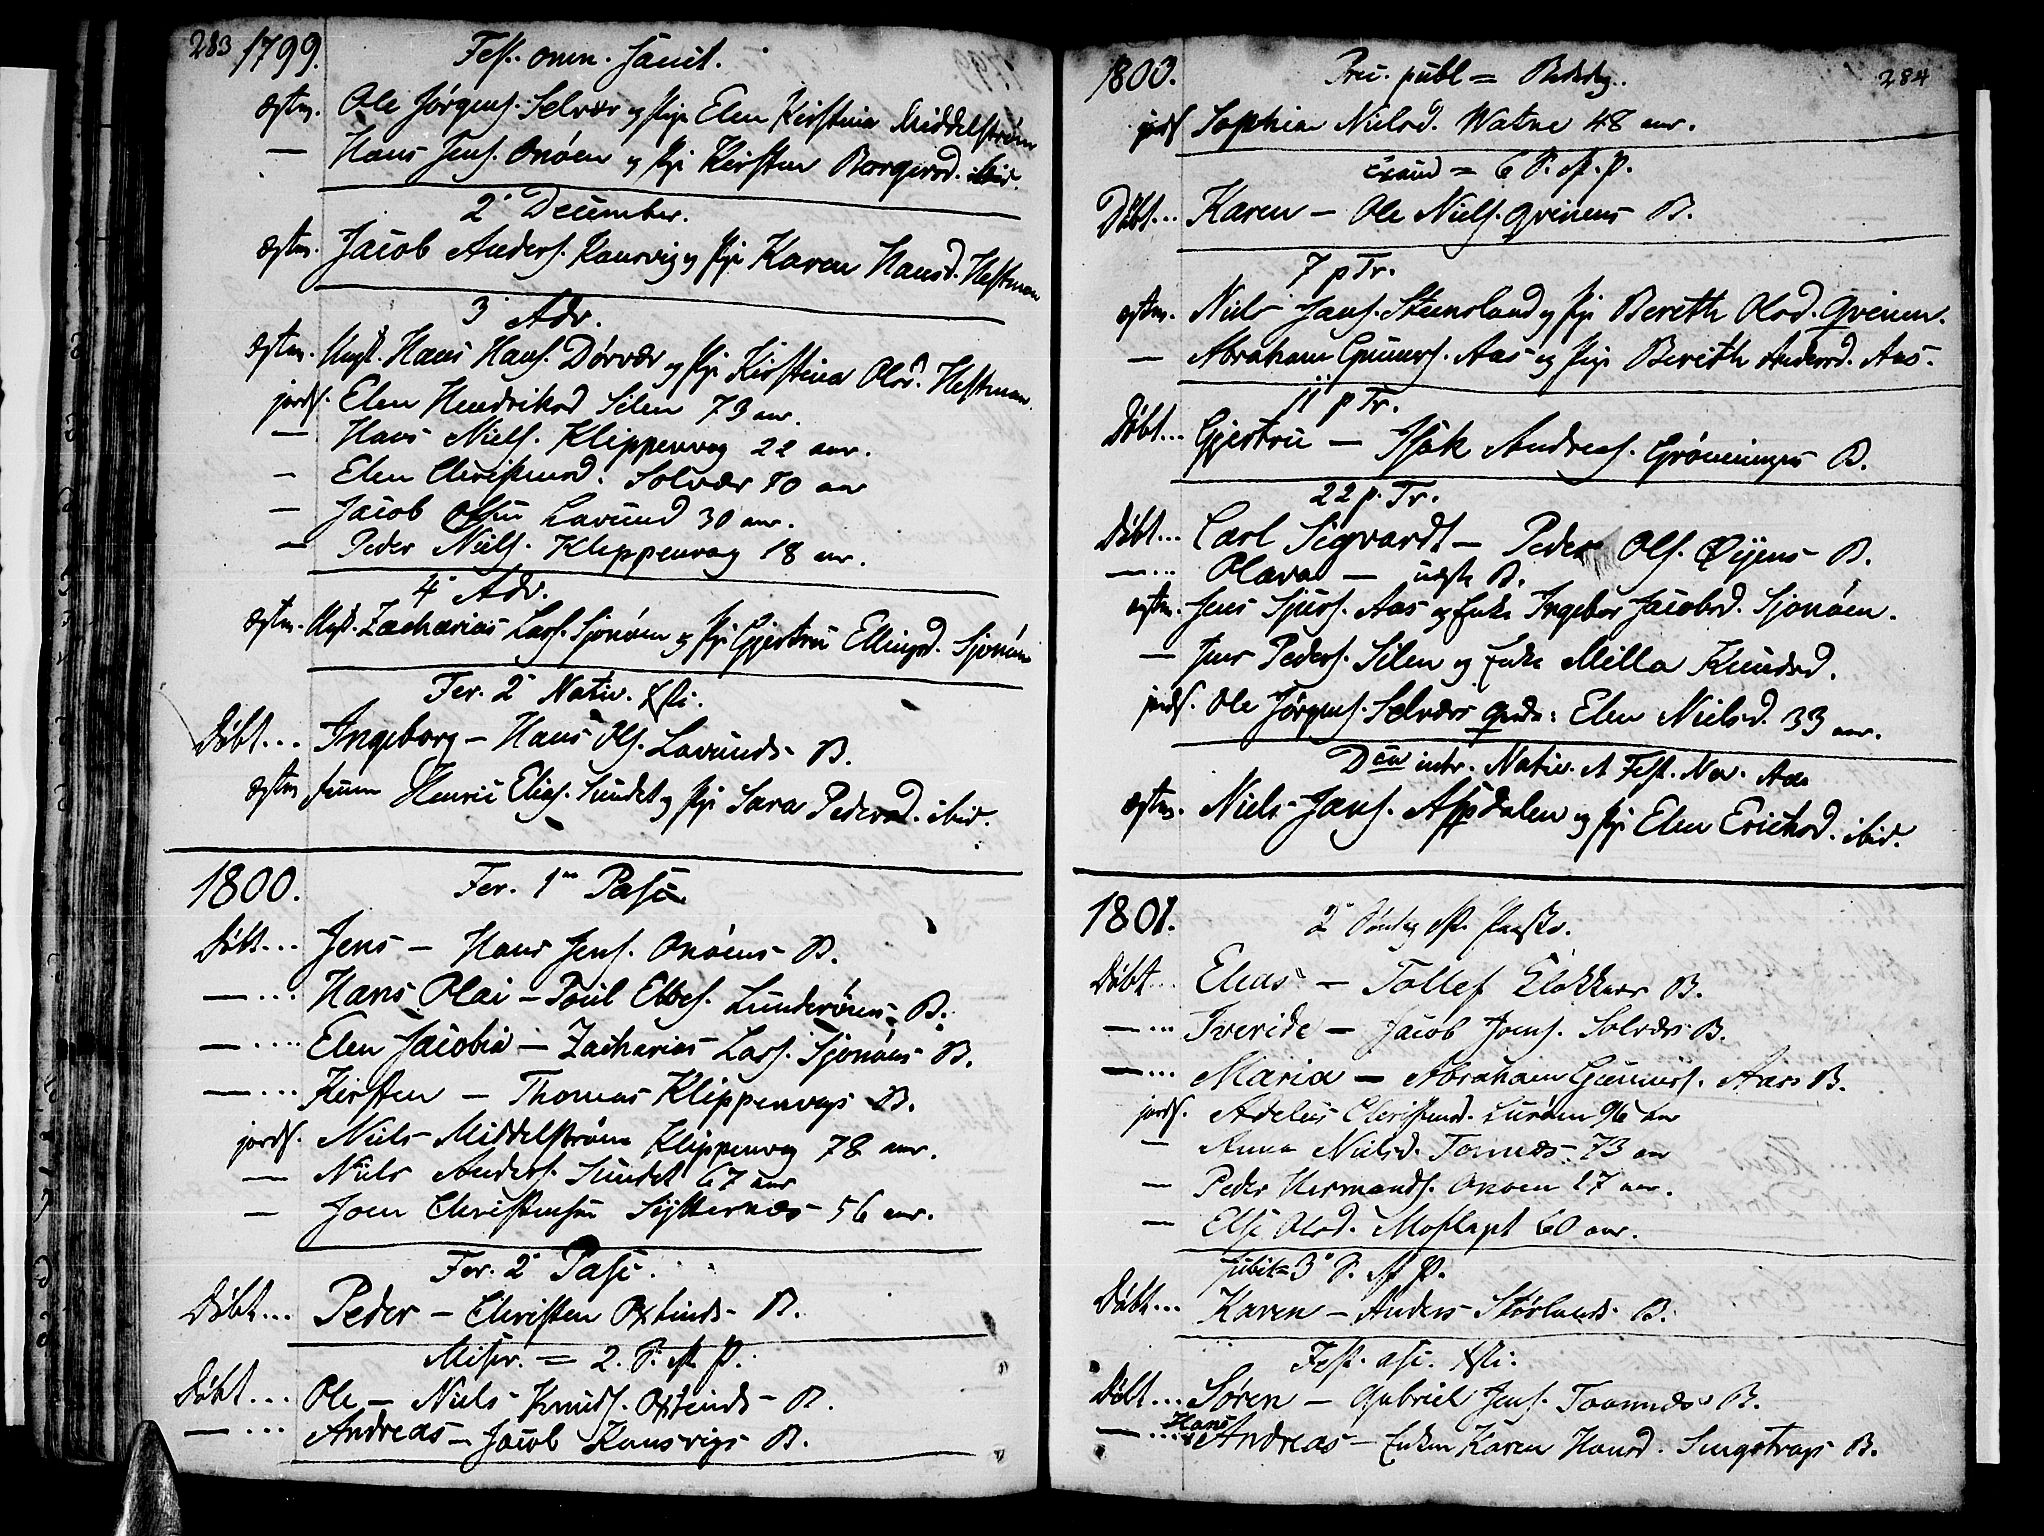 283 1799. Fest. omn. Sanct.
ægtev. Ole Jørgens. Selvær og pige Elen Kirstina Middelstrøm
— Hans Jens. Onøen og pige Kirsten Borgersd. ibid.
2 December.
ægtev. Jacob Anders. Konsvig og pige Karen Hansd. Hestmon
3 Adv.
ægtev. Ungk. Hans Hans. Dørvær og pige Kirstina Olsd. Hestmon.
jordf. Elen Hendriksd Silen 73 aar.
— Hans Niels. Klippenvog 22 aar.
— Elen Christensd. Solvær 70 aar
— Jacob Olsen Lavund 30 aar.
— Peder Niels. Klippenvog 18 aar.
4 Adv.
ægtev. Ungk. Zacharias Lars. Sjonøen og pige Gjertru Ellingsd. Sjonøen
Fer. 2 Nativ. Xsti.
Døbt... Ingeborg — Hans Ols. Lavunds B.
ægtev. Henric Elias. Sundet og pige Sara Pedersd. ibid.
1800. Fer. 1 Pasc.
Døbt... Jens — Hans Jens. Onøens B.
— ... Hans Olai — Poul Ebbes. Lunderøens B.
— .... Elen Jacobia — Zacharias Lars. Sjonøens B.
— ... Kirsten — Thomas Klippenvogs B.
jordf. Niels Middelstrøm Klippenvog 78 aar.
— Niels Anders. Sundet 67 aar
— Joen Christensen Systernæs 56 aar.
Fer. 2 Pasc.
Døbt... Peder — Christen Oxtinds B.
Miser. = 2. S. eft. P.
Døbt... Ole — Niels Knuds. Oxtinds B.
— ... Andreas — Jacob Konsvigs B.
1800. Prec. publ = Bededag. 284
jordf Sophia Nielsd. Watne 48 aar.
Exaud = 6 S. eft. P.
Døbt... Karen — Ole Niels. Qvinens B.
7 p Tr.
ægtev. Niels Jans. Stensland og pige Bereth Olsd. Qveinen.
— Abraham Gunners. Aas og pige Berith Andersd. Aas.
11 p Tr.
Døbt... Gjertru — Isak Andreas. Grønninges B.
22 p. Tr.
Døbt... Carl Sigvardt — Peder Ols. Øyens B.
— ... Olava — uægte B.
ægtev. Jens Sjurs. Aas og Enke Ingebor Jacobsd. Sjonøen.
— Jens Peders. Silen og Enke Milla Knudsd.
jordf. Ole Jørgens. Selværs Qvde: Elen Nielsd. 33 aar.
Dca intr. Nativ. et Fest. Nov. Ann
ægtev. Niels Jans. Aspdalen og pige Elen Erichsd. ibid.
1801. 2 Søndag eft. Paaske.
Døbt... Elias — Tollef Klokkers B.
— ... Tveride — Jacob Joens. Solværs B.
— ... Maria — Abraham Gunners. Aas B.
jordf. Adelus Christensd. Lurøen 96 aar
— Anna Nielsd. Tonnes 73 aar
— Peder Hermands. Onøen 17 aar.
— Else Olsd. Moflapt 60 aar.
Jubil = 3 S. eft P.
Døbt... Karen — Anders Storlands B.
Fest. asc. Xsti.
Døbt... Søren — Gabriel Jens. Tonnæs B.
— ... Hans Andreas — Enken Karen Hansd. Smgstrags B.